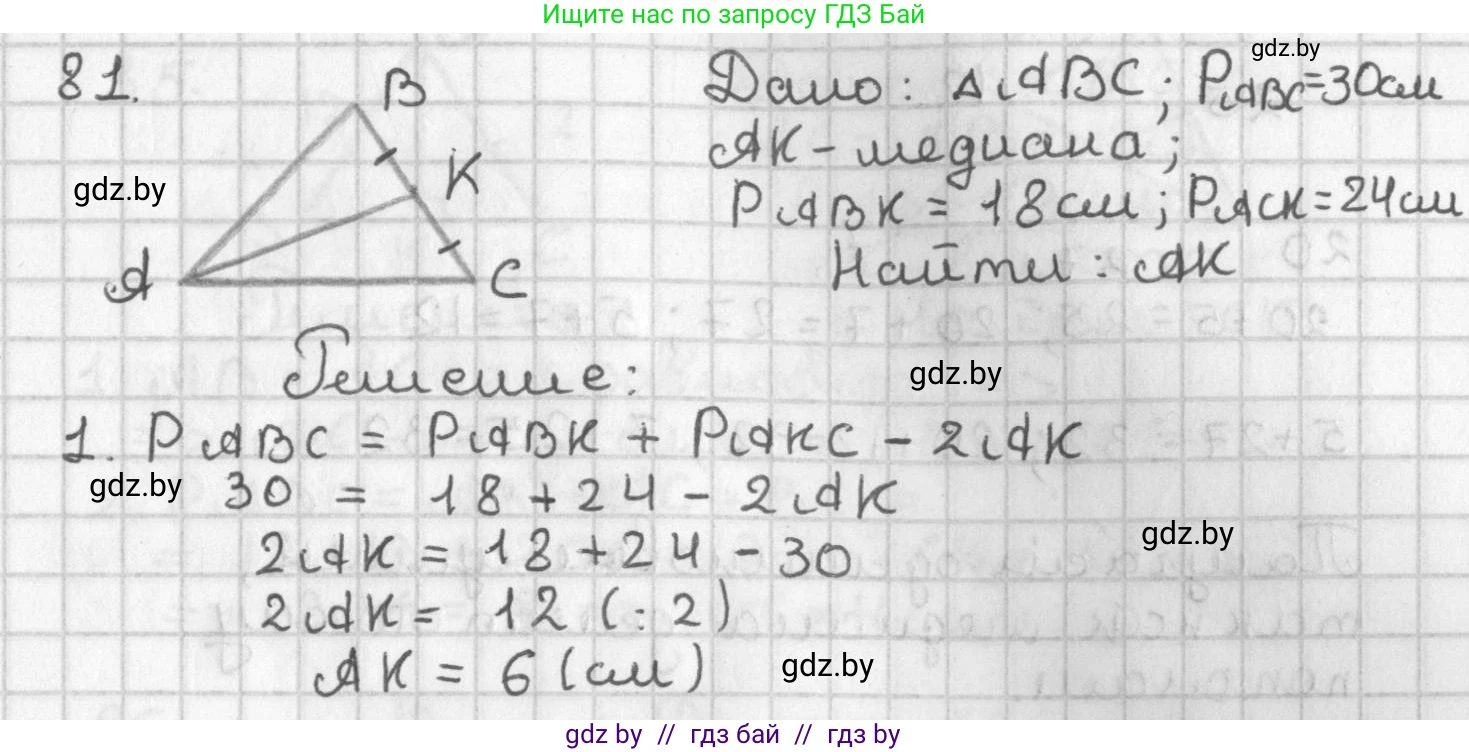 Ищите нас по запросу ГДЗ Бай
gdz.by
81.
B
K
A
C
gdz.by
Дано: △ABC; P_ABC=30см
AK - медиана;
P ABK = 18см; P ACK=24см
Найти: AK
Решение:
gdz.by
1. P ABC = P ABK + P AKC - 2AK
gdz.by
30 = 18+24 - 2AK
2AK = 18+24 - 30
gdz.by
2AK = 12 (:2)
AK = 6 (см)
gdz.by
gdz by // гдз бай // гдз by